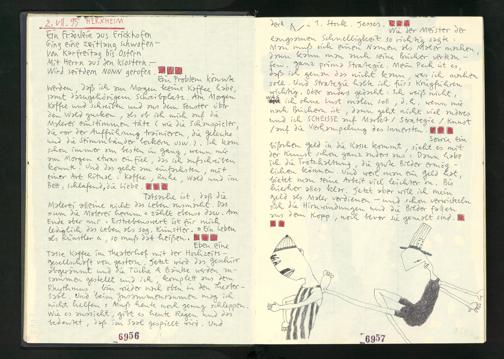 2. VII. 95 HERXHEIM
Ein Fräulein aus Erichofen
Ging eine Zeitlang schwofen -
Von Karfreitag bis Ostern
Mit Herrn aus den Klöstern -
Wird seitdem NONN gerufen
Ein Problem könnte
werden, daß ich am Morgen keine Kaffee habe,
samt dazugehörigem Schreibplatz. Am Morgen
Kaffee und schreiben und aus dem Fenster über
den Wald gucken - als ob ich mich auf die
Malerei einstimmen täte (wie die Schauspieler,
die vor der Aufführung trainieren, die Gelenke
und die Stimmbänder lockern usw.). Ich komm
schon immer am besten in Gang, wenn mir
am Morgen etwas einfiel, das ich aufschreiben
kannst. Und das geht am einfachsten, mit
einer Art Ritual: Kaffee, Ruhe, Wald und im
Bett, schlafend, die Liebe.
Tatsache ist, daß die
Malerei alleine nicht das Leben ausmacht. Das
was die Malerei herum - zähle ebenso dazu. Am
Ende aber nur - Erstrebenswert ist für mich
lediglich das Leben als sog. Künstler. "Ein Leben
als Künstler", so muß das heißen.
Eben eine
Tasse Kaffee im Theaterhof mit der Hochzeits-
gesellschaft von gestern. Jetzt wird das Geschirr
abgeräumt und die Tische & Bänke werden zu-
sammen gestellt und ich, komplett aus dem
Rhythmus - bin wieder mal oben in den Theater-
saal. Und beim Zusammenräumen mag ich
nicht helfen. Muß heute noch genug schleppen.
Wie es aussieht, gibt es heute Regen und das
bedeutet, daß im Saal gespielt wird. Und
6956
dort - 1. Stock. Jesses.
Wie der Meister der
langsamen Schnelligkeit so richtig sagte:
Man muß sich einen Namen als Maler machen
dann kann man auch seine Bücher verkaufen.
ganz primo Strategie. Mein Pech ist es,
daß ich genau das nicht kann, was ich machen
soll. Und Strategie halte ich fürs Kriegführen
wichtig. Aber malen gerade ich
ich ohne Lust malen soll, d.h., wenn mir
nach Büchern ist, dann geht nicht viel anderes
und ich SCHEISSE auf Markt / Strategie / Kunst
/ auf die Verkrampfung des Innersten
Sowie ein
bißchen Geld in die Kasse kommt, sieht es mit
der Kunst schon ganz anders aus. Dann habe
ich die Freistellung, die gute Bilder ermög-
lichen können. Und weil man ein Geld hat,
fließt von neuer Arbeit viel leichter. Bis
hierher alles klar. Jetzt aber will ich mein
Geld als Maler verdienen - und schon verwickeln
sich die Hirnwindungen und die Bilder fallen
aus dem Kopp, noch bevor sie gemalt sind.
6957